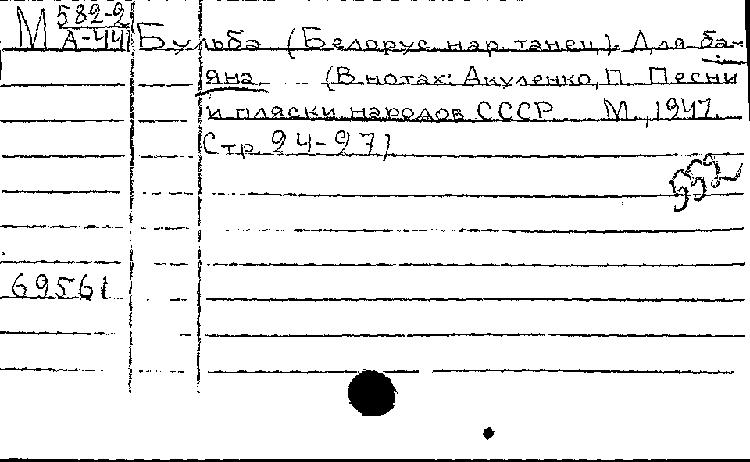 М 582-2
А-441 Бульба (Белорус. нар. танец). Для бая-
яна. (В нотах: Акуленко, П. Песни
и пляски народов СССР М., 1947.
Стр. 24-27)
69561